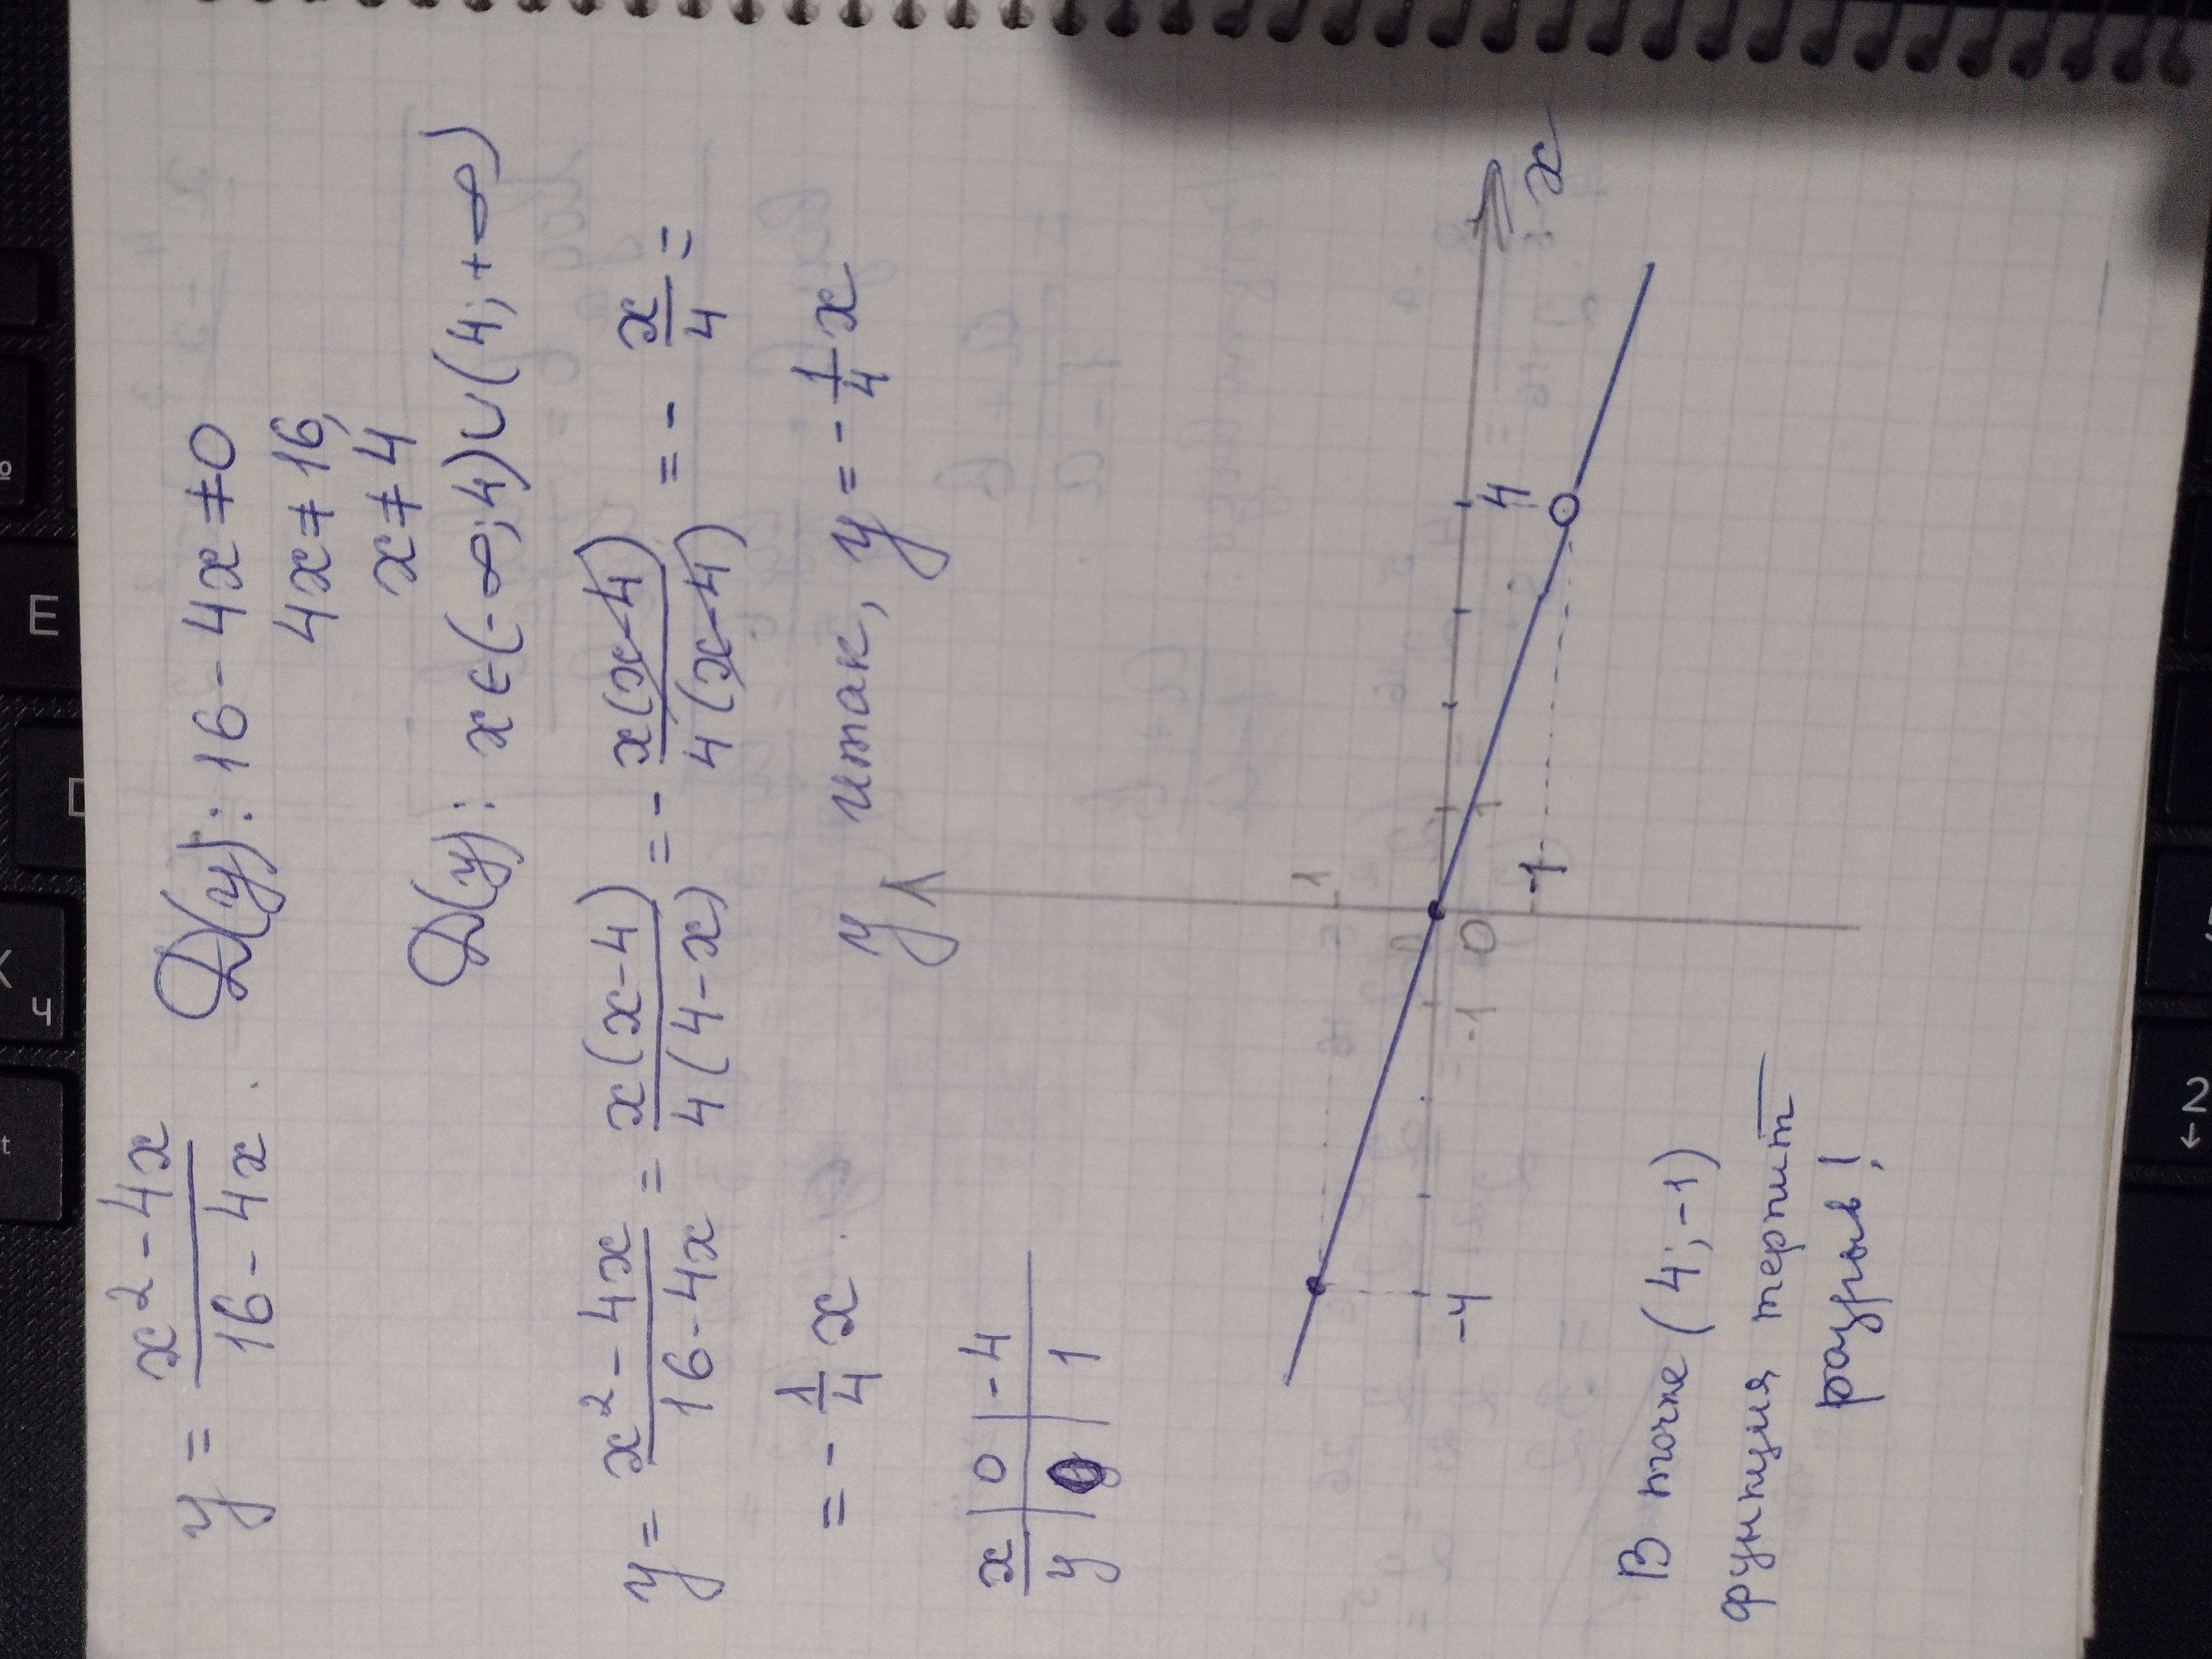 y = (x² - 4x)/(16 - 4x). D(y): 16 - 4x ≠ 0
4x ≠ 16,
x ≠ 4
D(y): x ∈ (-∞; 4) ∪ (4; +∞)
y = (x² - 4x)/(16 - 4x) = x(x - 4)/4(4 - x) = - x(x - 4)/4(x - 4) = - x/4 =
= - 1/4 x итак, y = - 1/4 x
x | 0 | -4
y | 0 | 1
y
1
-4 -1 0 1 4 x
-1
В точке (4; -1)
функция терпит
разрыв!
E
Ч
2